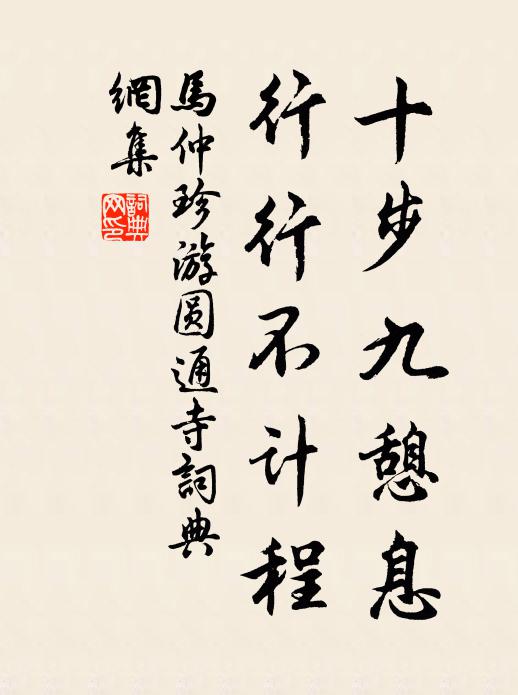 十步九憩息
行行不计程
馬仲珍游圆通寺詞典
網集
詞典
网印